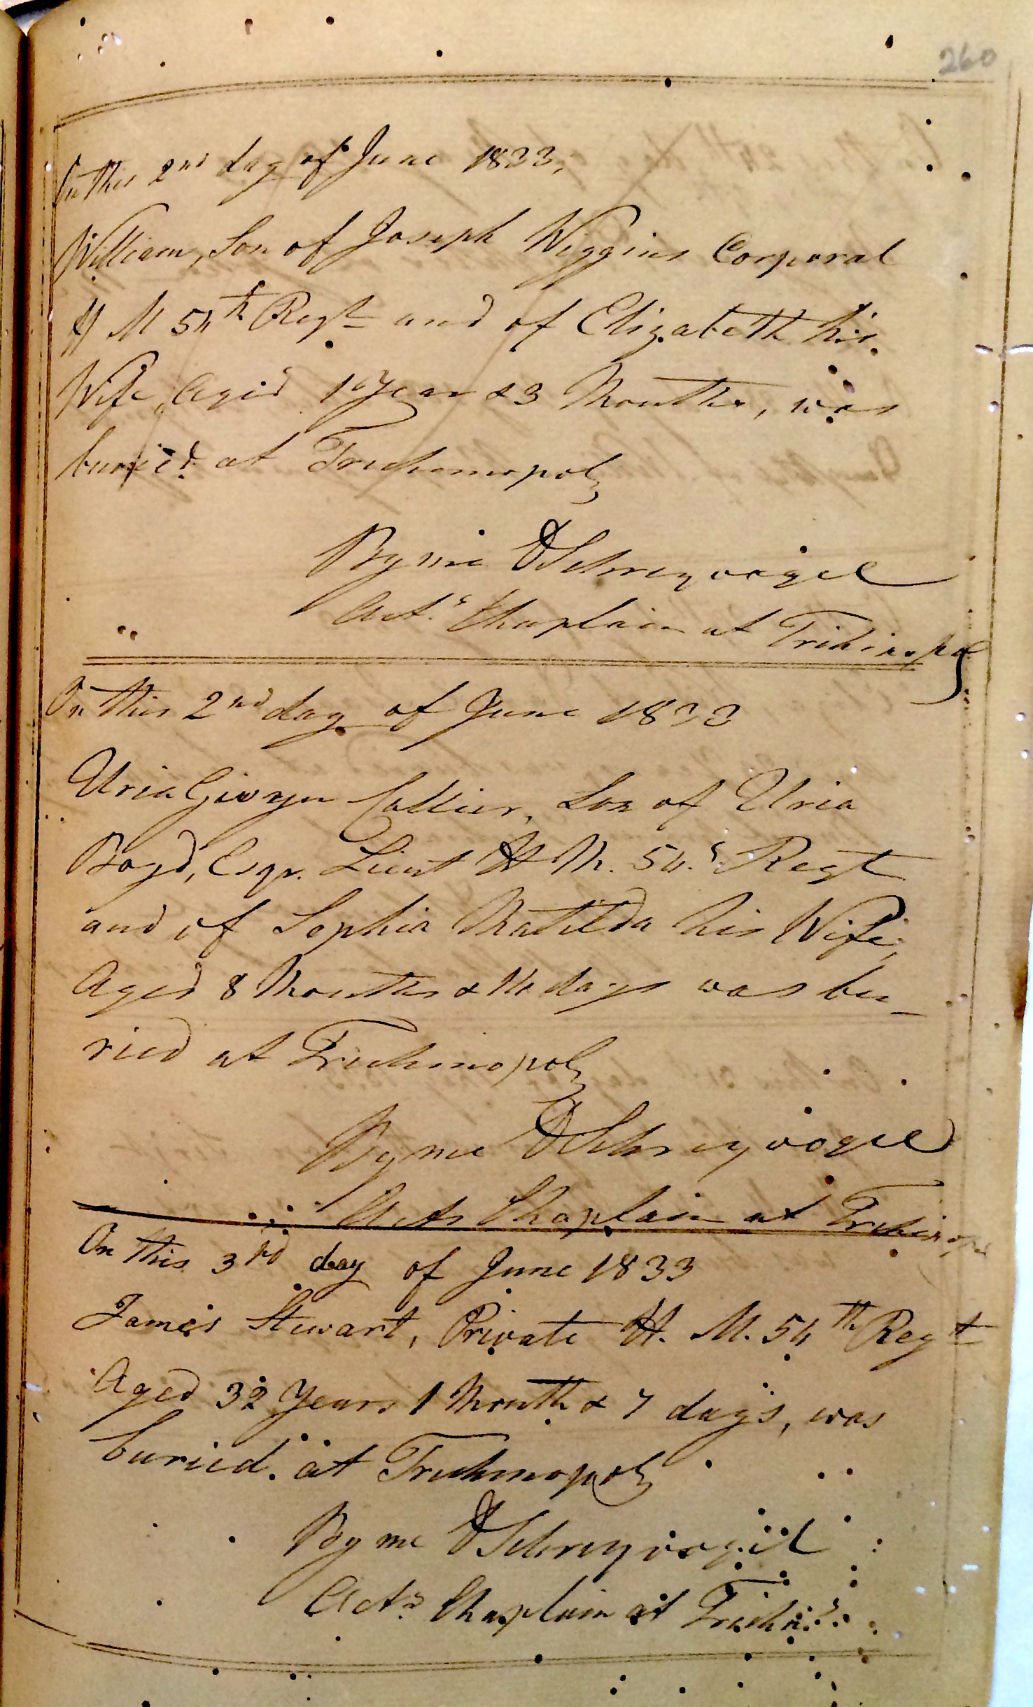 260
On this 2nd day of June 1833,
William, Son of Joseph Wiggins Corporal
H M 54th Regt and of Elizabeth his
Wife, Aged 1 Year & 3 Months, was
buried at Trichinopoly
By me D Schreyvogel
Actg Chaplain at Trichinopoly
On this 2nd day of June 1833
Uria Givyn Collier, Son of Uria
Boyd, Esqr. Lieut H. M. 54. Regt
and of Sophia Matilda his Wife,
Aged 8 Months & 14 days was bu-
ried at Trichinopoly
By me D Schreyvogel
Actg Chaplain at Trichinopoly
On this 3rd day of June 1833
James Stewart, Private H. M. 54th Regt
Aged 32 Years 1 Month & 7 days, was
buried at Trichinopoly
By me D Schreyvogel
Actg Chaplain at